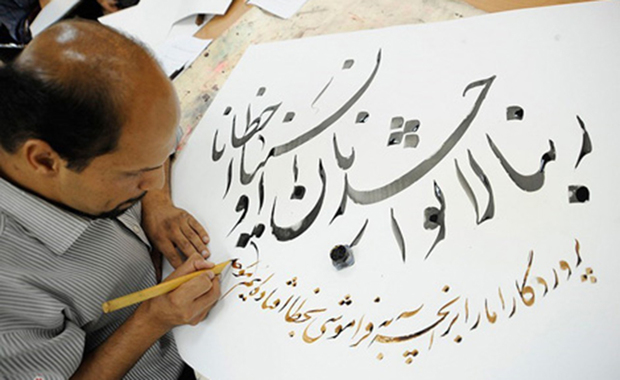 ربنا لا تواخذنا ان نسینا او اخطانا
پروردگارا ما را بر آنچه به فراموشی بخطا